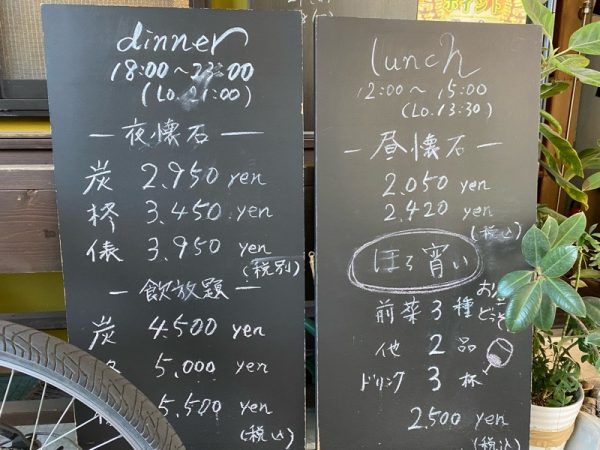 ポイント
dinner
18:00~23:00
(Lo.21:00)
—夜懐石—
炭 2.950 yen
柊 3.450 yen
俵 3.950 yen
(税別)
—飲放題—
炭 4.500 yen
5.000 yen
5.500 yen
(税込)
lunch
12:00~15:00
(Lo.13:30)
—昼懐石—
2.050 yen
2.420 yen
(税込)
ほろ宵い
前菜3種
他 2品
ドリンク 3杯
2,500 yen
(税込)